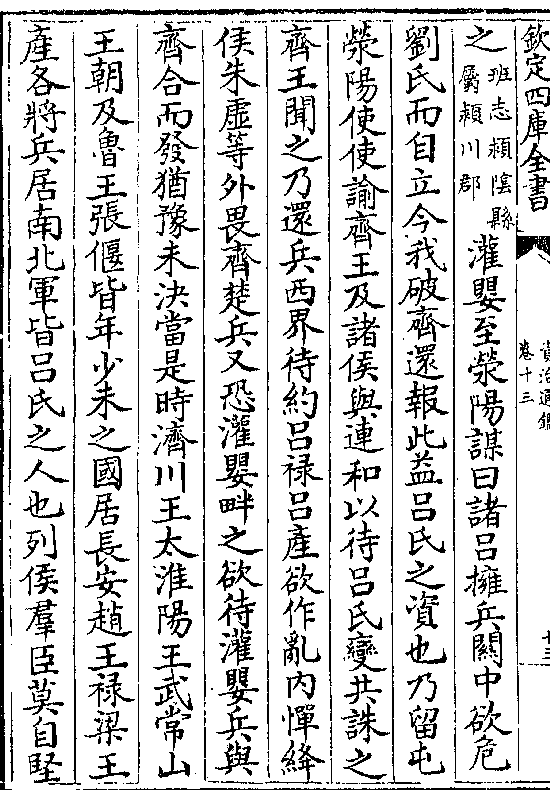 欽定四庫全書
資治通鑑
卷十三
十三
之班志潁陰縣
屬潁川郡灌嬰至滎陽謀曰諸呂擁兵關中欲危
劉氏而自立今我破齊還報此益呂氏之資也乃留屯
滎陽使使諭齊王及諸侯與連和以待呂氏變共誅之
齊王聞之乃還兵西界待約呂禄呂產欲作亂内憚絳
侯朱虛等外畏齊楚兵又恐灌嬰畔之欲待灌嬰兵與
齊合而發猶豫未決當是時濟川王太淮陽王武常山
王朝及魯王張偃皆年少未之國居長安趙王禄梁王
產各將兵居南北軍皆呂氏之人也列侯羣臣莫自堅